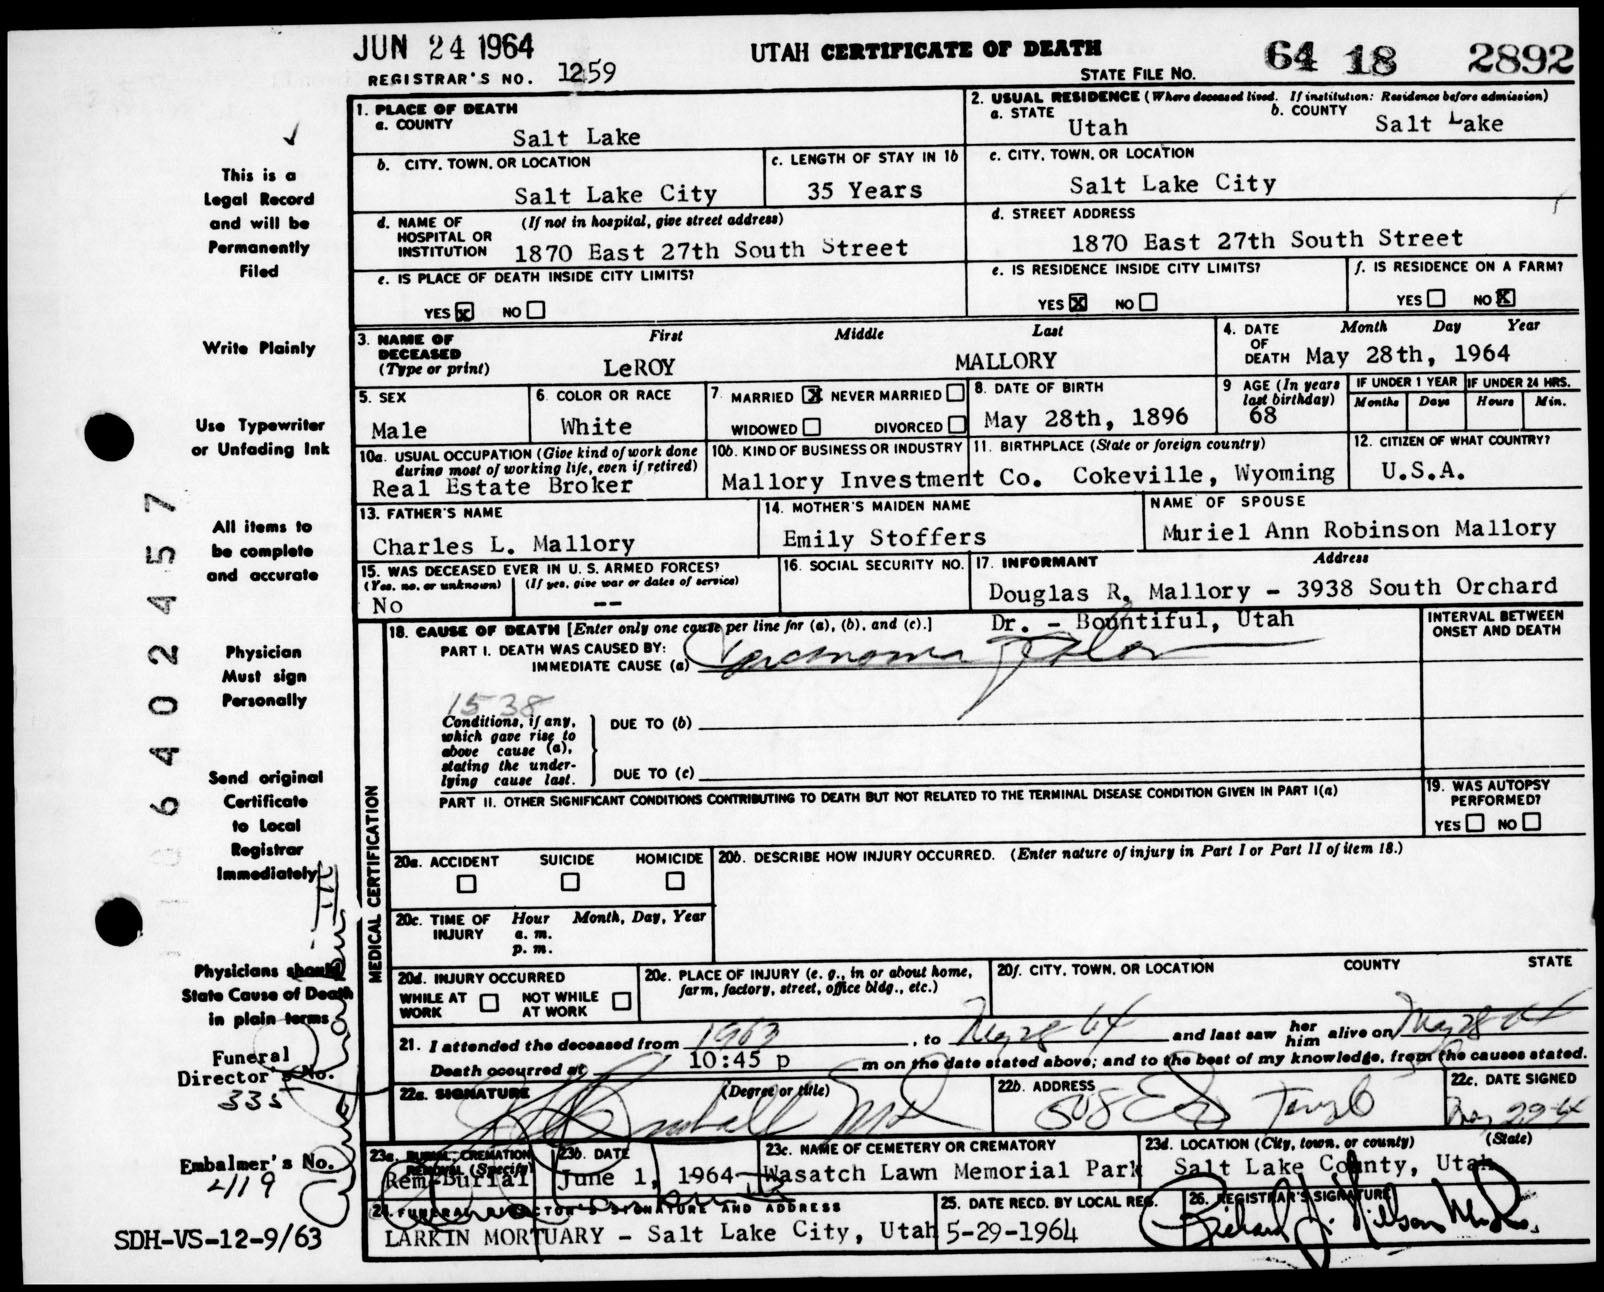 JUN 24 1964
UTAH CERTIFICATE OF DEATH
64 18 2892
REGISTRAR'S NO. 1259
STATE FILE NO.
1. PLACE OF DEATH
a. COUNTY
Salt Lake
2. USUAL RESIDENCE (Where deceased lived. If institution: Residence before admission)
a. STATE Utah
b. COUNTY Salt Lake
b. CITY, TOWN, OR LOCATION
Salt Lake City
c. LENGTH OF STAY IN 1b
35 Years
c. CITY, TOWN, OR LOCATION
Salt Lake City
d. NAME OF HOSPITAL OR INSTITUTION
(If not in hospital, give street address)
1870 East 27th South Street
d. STREET ADDRESS
1870 East 27th South Street
e. IS PLACE OF DEATH INSIDE CITY LIMITS?
YES X NO
e. IS RESIDENCE INSIDE CITY LIMITS?
YES X NO
f. IS RESIDENCE ON A FARM?
YES NO X
3. NAME OF DECEASED (Type or print)
First Middle Last
LeROY MALLORY
4. DATE OF DEATH
Month Day Year
May 28th, 1964
5. SEX
Male
6. COLOR OR RACE
White
7. MARRIED X NEVER MARRIED
WIDOWED DIVORCED
8. DATE OF BIRTH
May 28th, 1896
9 AGE (In years last birthday)
68
IF UNDER 1 YEAR
Months Days
IF UNDER 24 HRS.
Hours Min.
10a. USUAL OCCUPATION (Give kind of work done during most of working life, even if retired)
Real Estate Broker
10b. KIND OF BUSINESS OR INDUSTRY
Mallory Investment Co.
11. BIRTHPLACE (State or foreign country)
Cokeville, Wyoming
12. CITIZEN OF WHAT COUNTRY?
U.S.A.
13. FATHER'S NAME
Charles L. Mallory
14. MOTHER'S MAIDEN NAME
Emily Stoffers
NAME OF SPOUSE
Muriel Ann Robinson Mallory
15. WAS DECEASED EVER IN U. S. ARMED FORCES?
(Yes, no, or unknown) (If yes, give war or dates of service)
No --
16. SOCIAL SECURITY NO.
17. INFORMANT Address
Douglas R. Mallory - 3938 South Orchard
Dr. - Bountiful, Utah
18. CAUSE OF DEATH [Enter only one cause per line for (a), (b), and (c).]
PART I. DEATH WAS CAUSED BY:
IMMEDIATE CAUSE (a) Carcinoma of Colon
INTERVAL BETWEEN ONSET AND DEATH
1538
Conditions, if any, which gave rise to above cause (a), stating the underlying cause last.
DUE TO (b)
DUE TO (c)
PART II. OTHER SIGNIFICANT CONDITIONS CONTRIBUTING TO DEATH BUT NOT RELATED TO THE TERMINAL DISEASE CONDITION GIVEN IN PART I(a)
19. WAS AUTOPSY PERFORMED?
YES NO
MEDICAL CERTIFICATION
20a. ACCIDENT SUICIDE HOMICIDE
20b. DESCRIBE HOW INJURY OCCURRED. (Enter nature of injury in Part I or Part II of item 18.)
20c. TIME OF INJURY
Hour Month, Day, Year
a. m.
p. m.
20d. INJURY OCCURRED
WHILE AT WORK NOT WHILE AT WORK
20e. PLACE OF INJURY (e. g., in or about home, farm, factory, street, office bldg., etc.)
20f. CITY, TOWN, OR LOCATION COUNTY STATE
21. I attended the deceased from 1963, to May 28 64 and last saw her him alive on May 28 64
Death occurred at 10:45 p m on the date stated above; and to the best of my knowledge, from the causes stated.
22a. SIGNATURE (Degree or title)
22b. ADDRESS
508 E So Temple
22c. DATE SIGNED
May 29 64
23a. BURIAL, CREMATION REMOVAL (Specify)
Rem-Burial
23b. DATE
June 1, 1964
23c. NAME OF CEMETERY OR CREMATORY
Wasatch Lawn Memorial Park
23d. LOCATION (City, town, or county) (State)
Salt Lake County, Utah
24. FUNERAL DIRECTOR'S SIGNATURE AND ADDRESS
LARKIN MORTUARY - Salt Lake City, Utah
25. DATE RECD. BY LOCAL REG.
5-29-1964
26. REGISTRAR'S SIGNATURE
This is a
Legal Record
and will be
Permanently
Filed
Write Plainly
Use Typewriter
or Unfading Ink
All items to
be complete
and accurate
Physician
Must sign
Personally
Send original
Certificate
to Local
Registrar
Immediately
Physicians should
State Cause of Death
in plain terms
Funeral
Director's No.
335
Embalmer's No.
SDH-VS-12-9/63
6402457